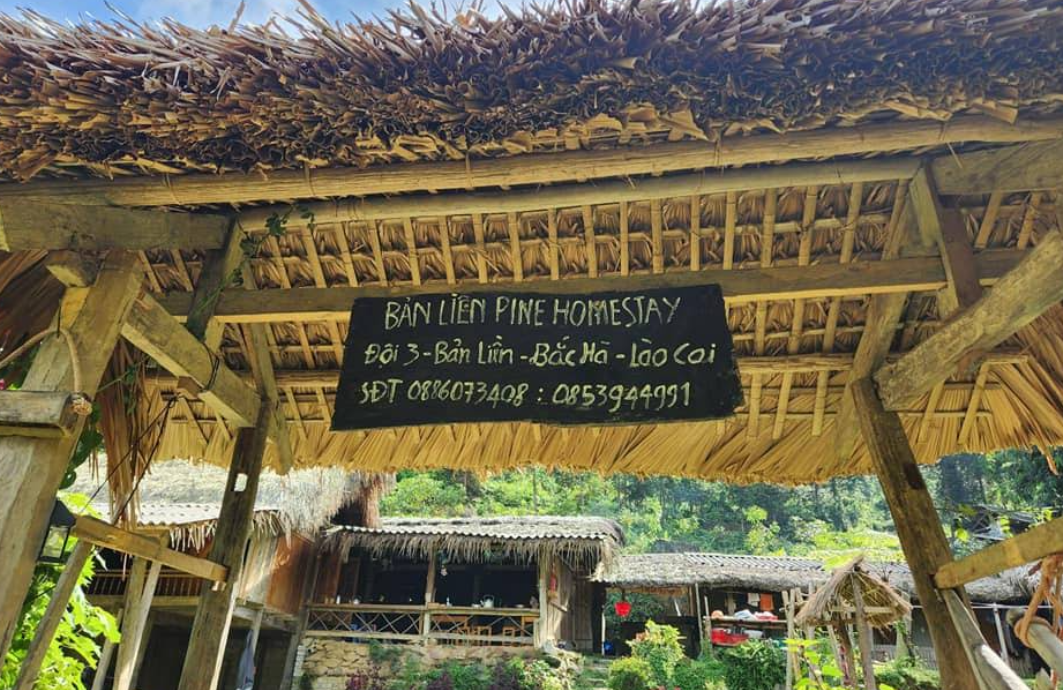 BẢN LIỀN PINE HOMESTAY
Đội 3 - Bản Liền - Bắc Hà - Lào Cai
SĐT 0886073408 : 0853944991